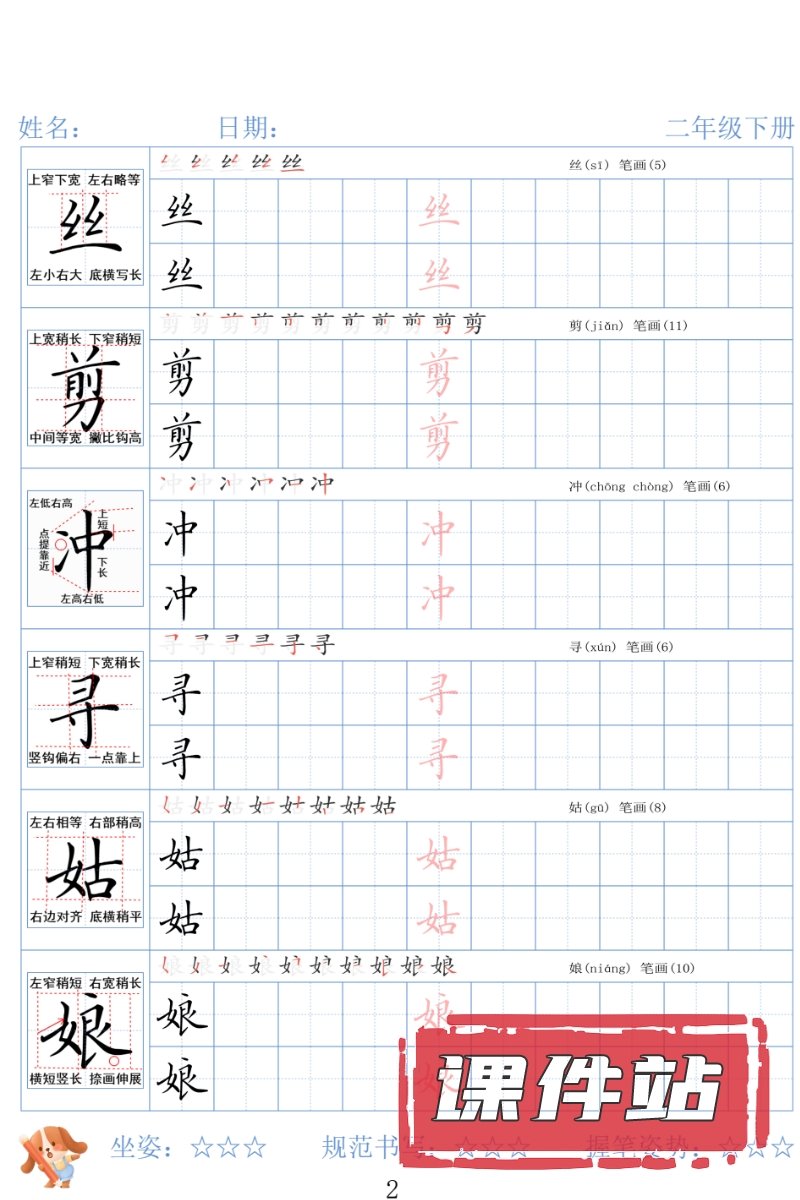 姓名： 日期： 二年级下册
丝 丝 丝 丝 丝 丝(sī) 笔画(5)
上窄下宽 左右略等
丝
左小右大 底横写长
丝 丝
丝 丝
剪 剪 剪 剪 剪 剪 剪 剪 剪 剪 剪 剪(jiǎn) 笔画(11)
上宽稍长 下窄稍短
剪
中间等宽 撇比钩高
剪 剪
剪 剪
冲 冲 冲 冲 冲 冲 冲(chōng chòng) 笔画(6)
左低右高
上短
点提靠近
冲
下长
左高右低
冲 冲
冲 冲
寻 寻 寻 寻 寻 寻 寻(xún) 笔画(6)
上窄稍短 下宽稍长
寻
竖钩偏右 一点靠上
寻 寻
寻 寻
姑 姑 姑 姑 姑 姑 姑 姑 姑(gū) 笔画(8)
左右相等 右部稍高
姑
右边对齐 底横稍平
姑 姑
姑 姑
娘 娘 娘 娘 娘 娘 娘 娘 娘 娘 娘(niáng) 笔画(10)
左窄稍短 右宽稍长
娘
横短竖长 捺画伸展
娘 娘
娘 娘
课件站
坐姿：☆☆☆ 规范书写：☆☆☆ 握笔姿势：☆☆☆
2